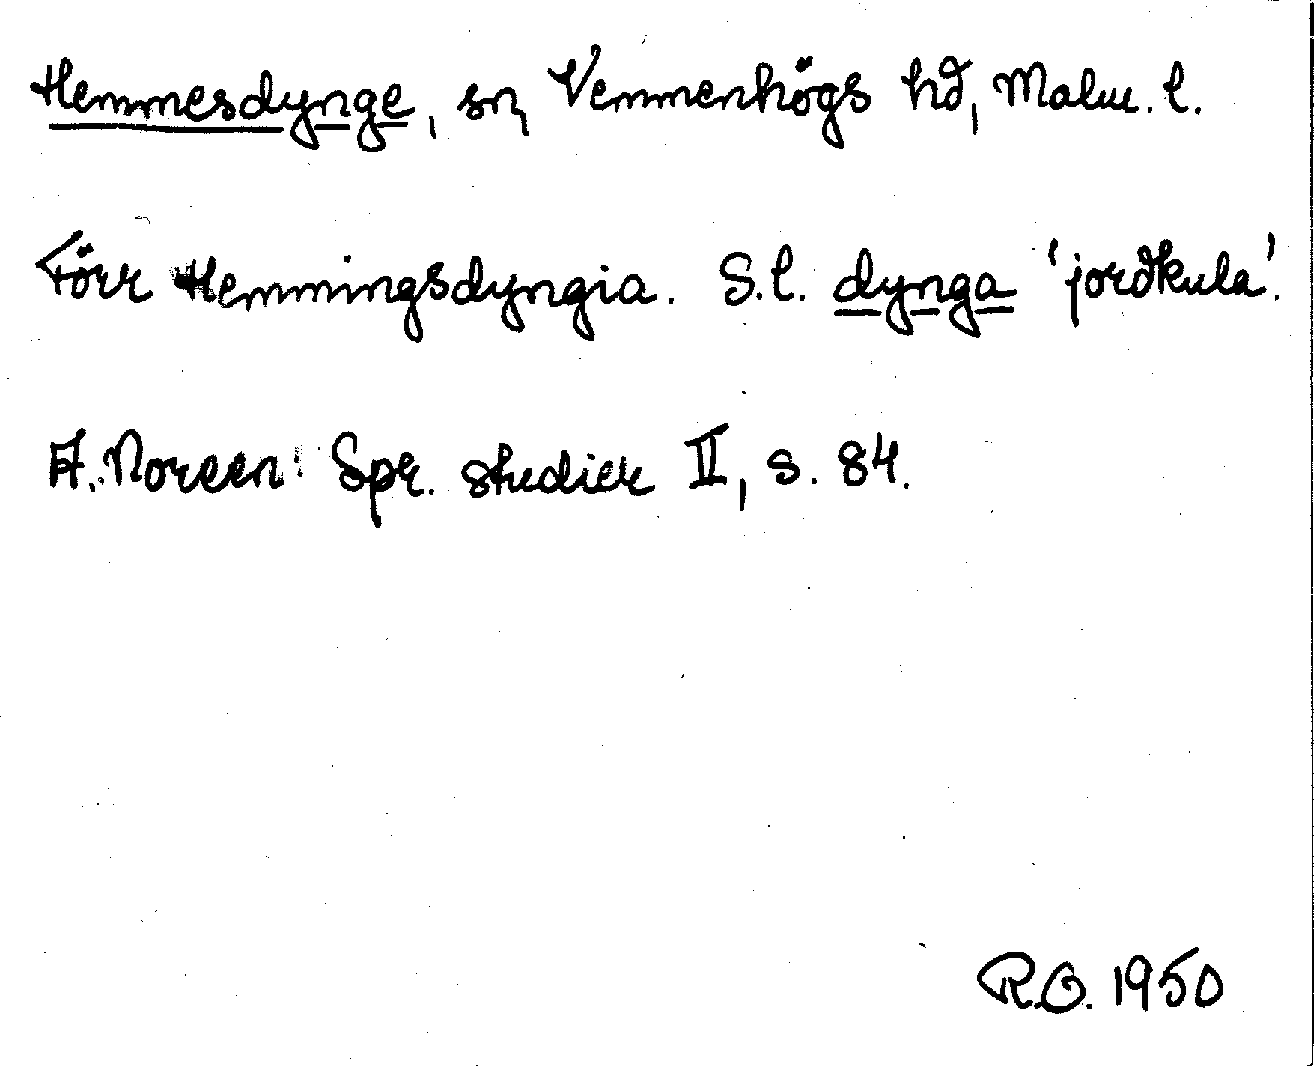 Hemmesdynge, sn, Vemmenhögs hd, Malm. l.
Förr Hemmingsdyngia. S.l. dynga 'jordkula'.
A. Noreen: Spr. studier II, s. 84.
R.O. 1950